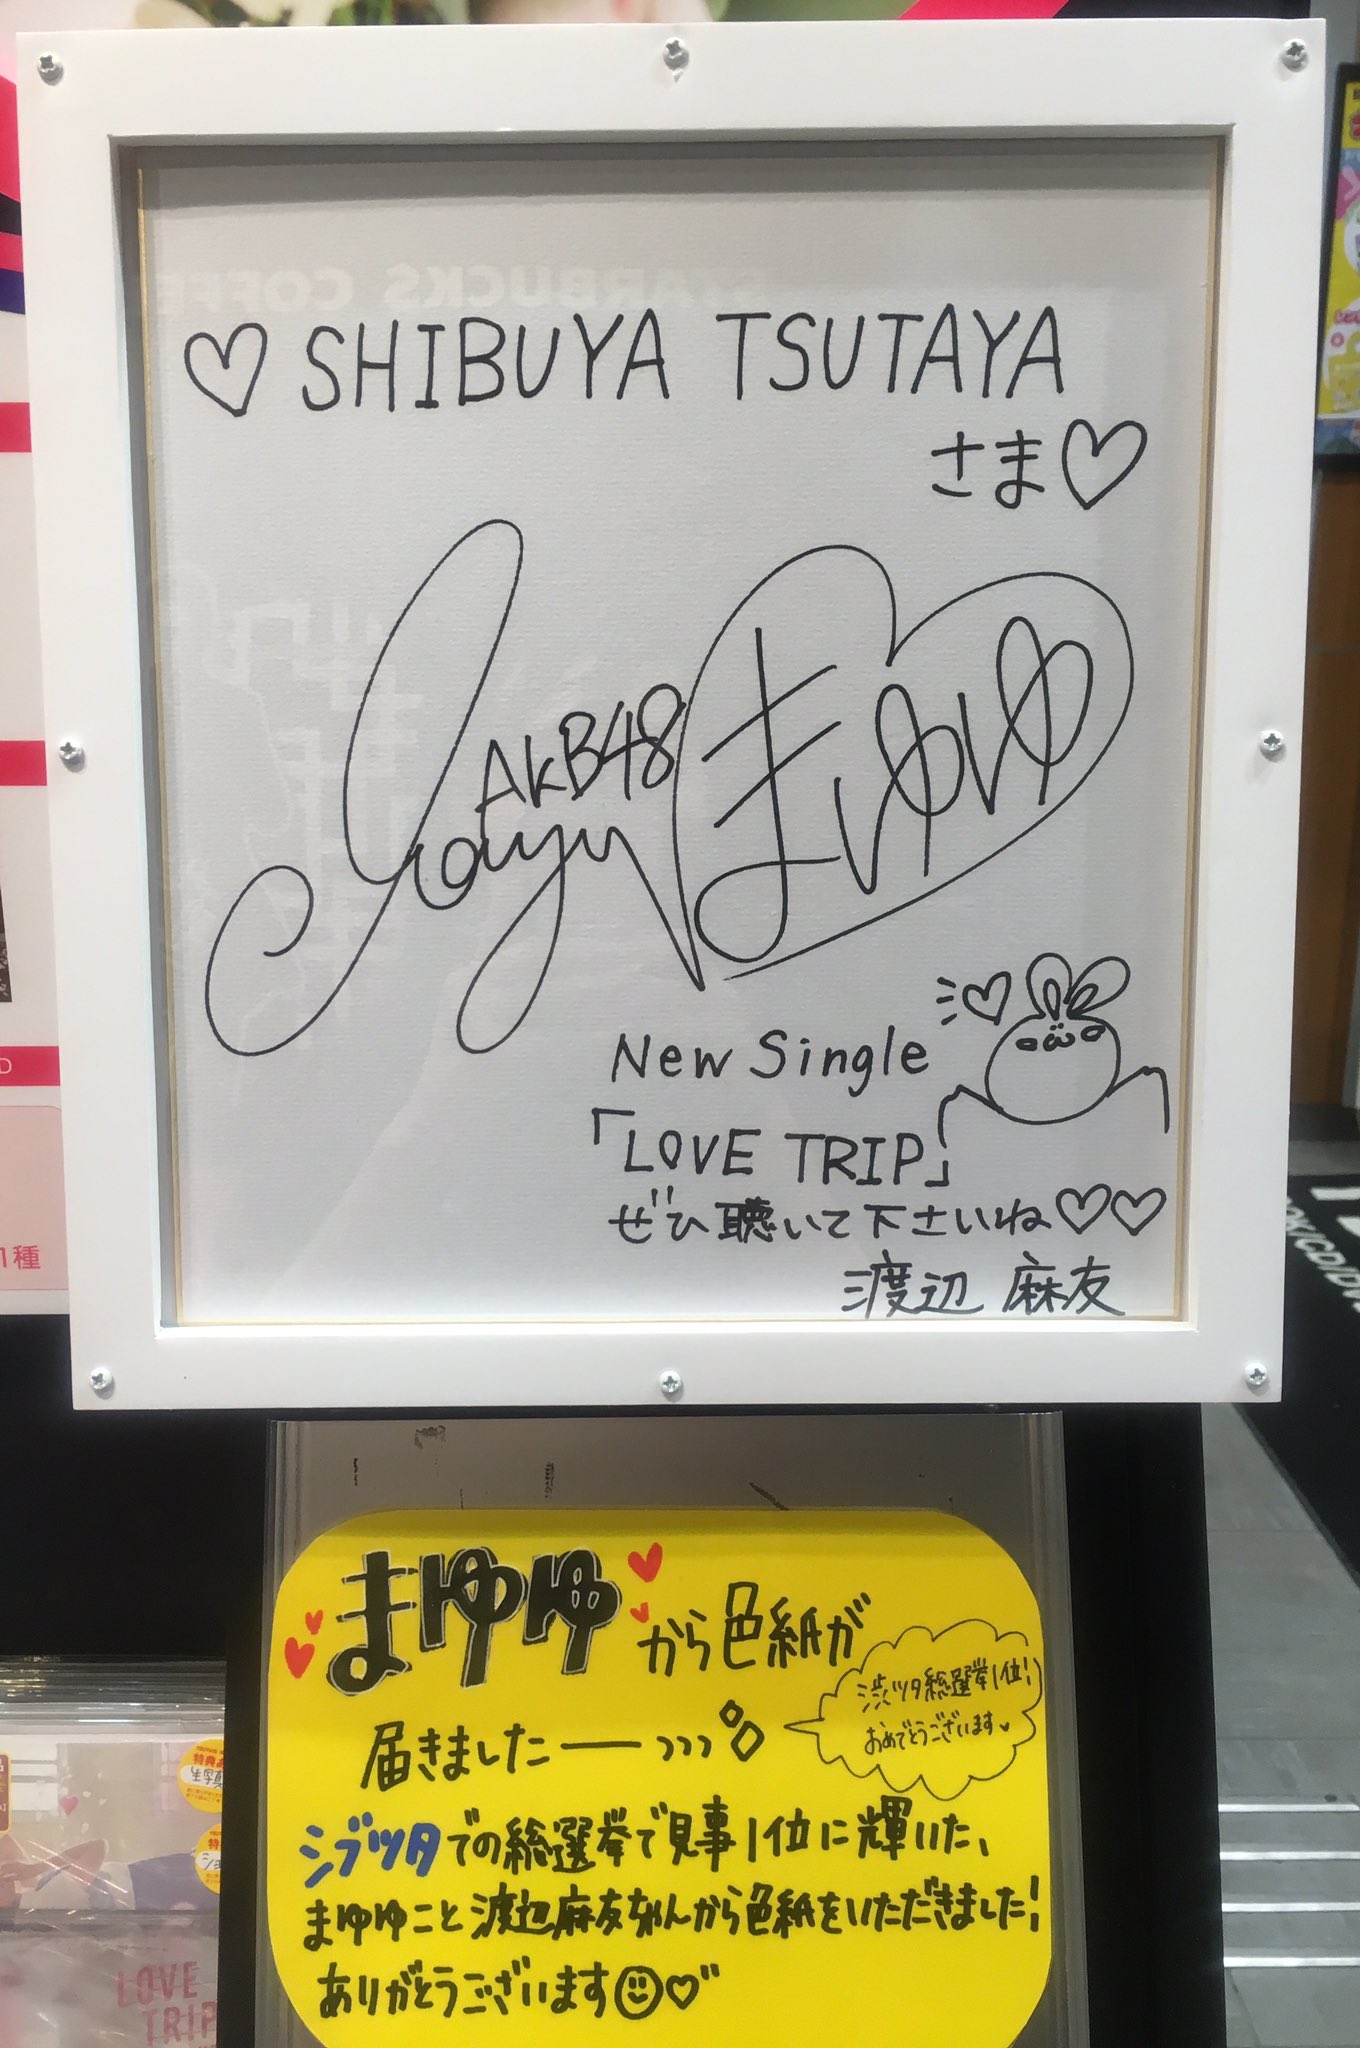 STARBUCKS COFFEE
♡ SHIBUYA TSUTAYA
さま♡
AKB48
Mayu
まゆゆ
New Single
「LOVE TRIP」
ぜひ聴いて下さいね♡♡
渡辺 麻友
1種
まゆゆから色紙が
届きましたー
渋ツタ総選挙1位!
おめでとうございます♥
シブツタでの総選挙で見事1位に輝いた、
まゆゆこと渡辺麻友ちゃんから色紙をいただきました!
ありがとうございます☺♡
LOVE
TRIP